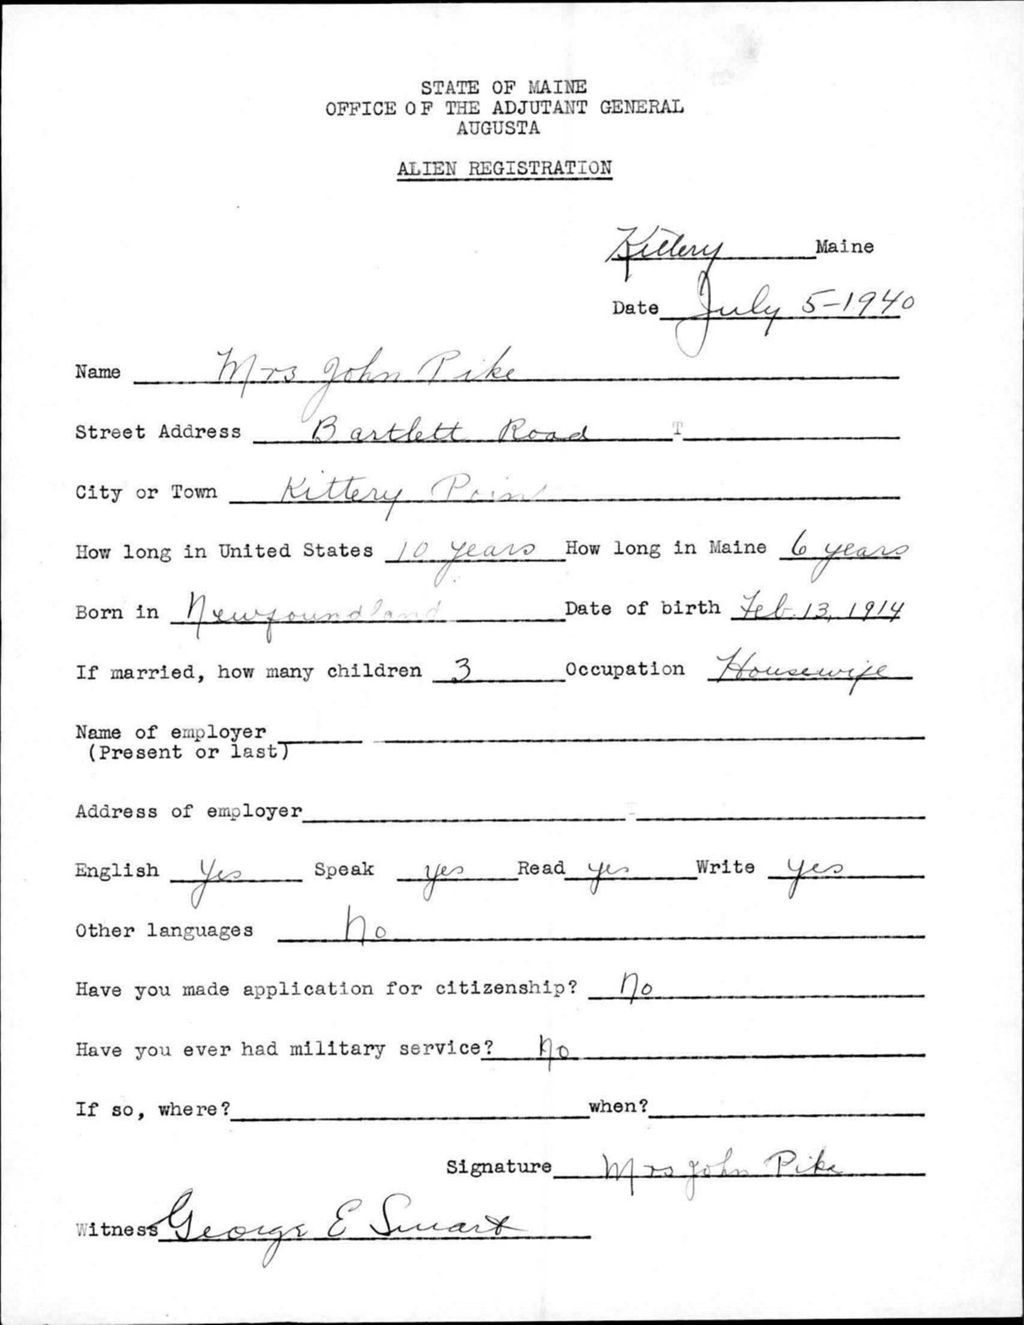 STATE OF MAINE
OFFICE OF THE ADJUTANT GENERAL
AUGUSTA
ALIEN REGISTRATION
Kittery Maine
Date July 5-1940
Name Mrs John Pike
Street Address Bartlett Road T
City or Town Kittery Point
How long in United States 10 years How long in Maine 6 years
Born in Newfoundland Date of birth Feb. 13, 1914
If married, how many children 3 Occupation Housewife
Name of employer
(Present or last)
Address of employer
English Yes Speak yes Read yes Write yes
Other languages No
Have you made application for citizenship? No
Have you ever had military service? No
If so, where? when?
Signature Mrs John Pike
Witness George E Smart